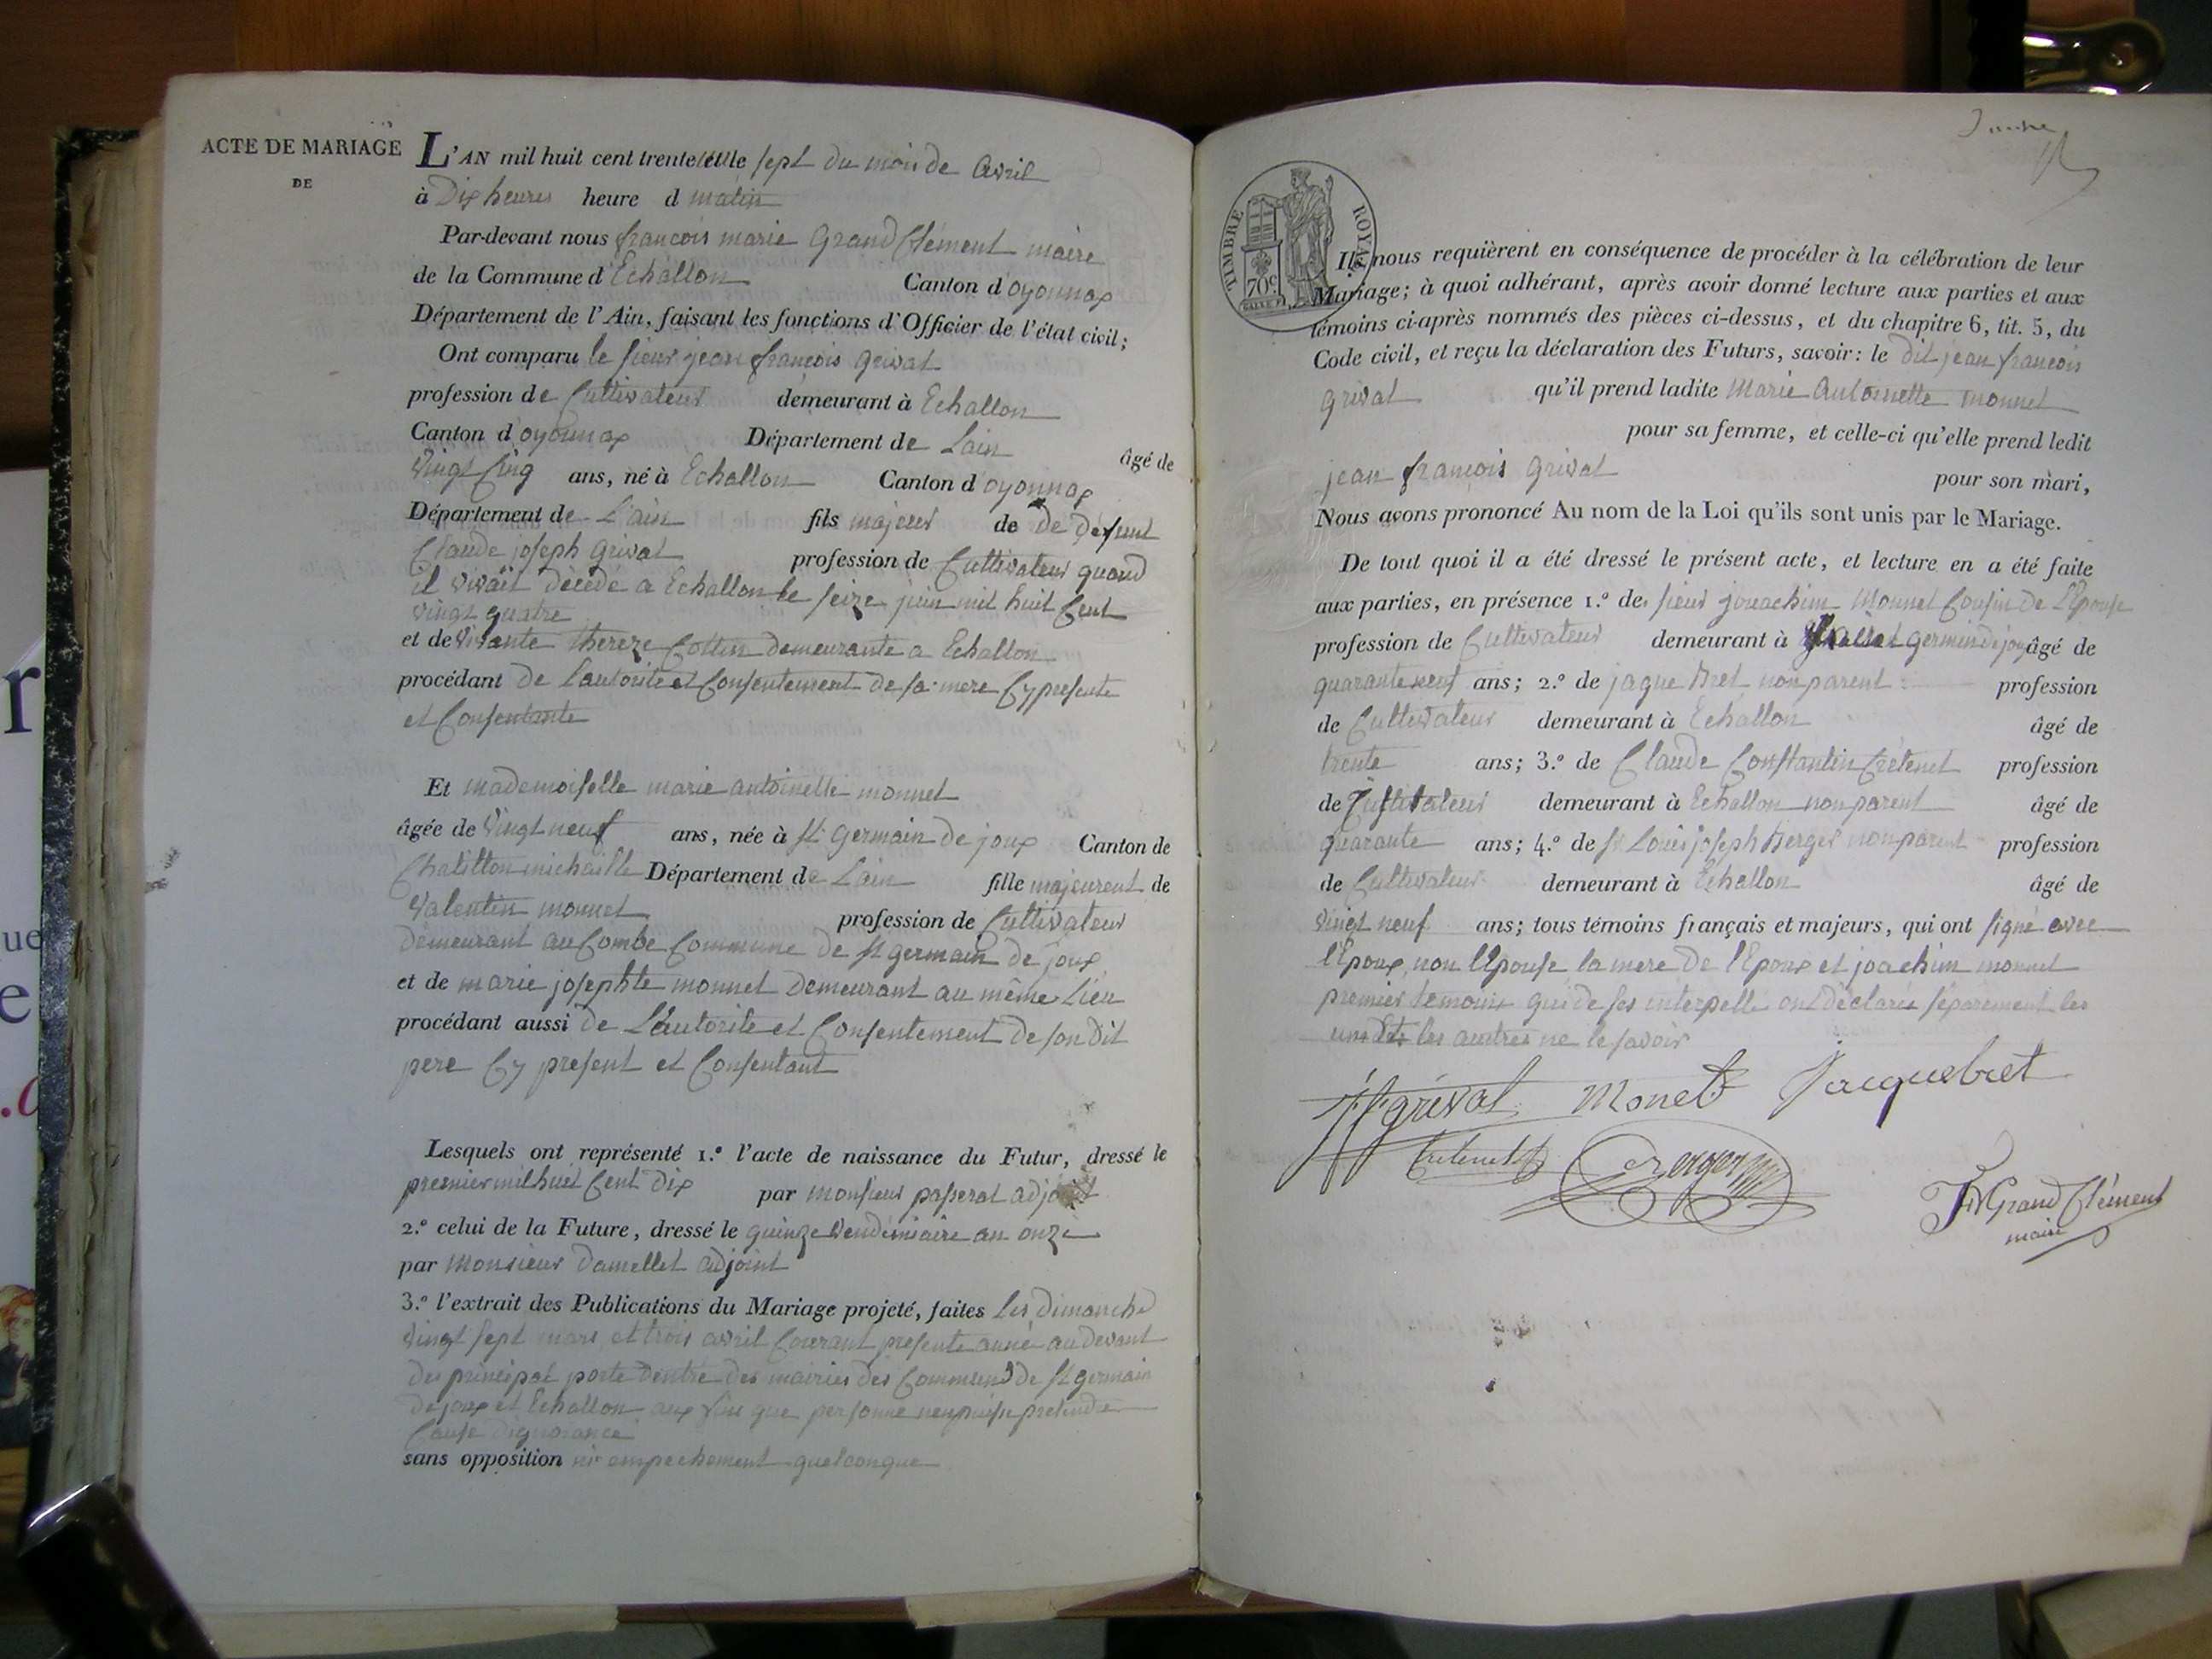 ACTE DE MARIAGE
DE
L'AN mil huit cent trente le sept du mois de avril
à Dix heures heure d matin
Par-devant nous françois marie Grand Clément maire
de la Commune d'Echallon Canton d'oyonnax
Département de l'Ain, faisant les fonctions d'Officier de l'état civil;
Ont comparu le sieur jean françois grivat
profession de Cultivateur demeurant à Echallon
Canton d'oyonnax Département de Lain âgé de
vingt Cinq ans, né à Echallon Canton d'oyonnax
Département de L'ain fils majeur de De Defunt
Claude joseph grivat profession de Cultivateur quand
il vivait décédé a Echallon le seize juin mil huit Cent
vingt quatre
et de vivante thereze Collin demeurante a Echallon
procédant De L'autorité et Consentement de sa mere Cy presente
et Consentante
Et mademoiselle marie antoinette monnet
âgée de vingt neuf ans, née à st germain de joux Canton de
Chatillon michaille Département de Lain fille majeure de
valentin monnet profession de Cultivateur
demeurant au Combe Commune de st germain de joux
et de marie josephte monnet Demeurant au même Lieu
procédant aussi de L'autorité et Consentement de son dit
pere Cy present et Consentant
Lesquels ont représenté 1.º l'acte de naissance du Futur, dressé le
premier mil huit Cent dix par monsieur passerat adjoint
2.º celui de la Future, dressé le quinze vendémiaire an onze
par Monsieur Damellet adjoint
3.º l'extrait des Publications du Mariage projeté, faites les dimanche
vingt sept mars et trois avril Courant presente année au devant
des principal porte dentré des mairies des Communes de st germain
de joux et Echallon aux que personne n'en puisse pretendre
Cause dignorance
sans opposition ni empechement quelconque
TIMBRE ROYAL
70c
Ils nous requièrent en conséquence de procéder à la célébration de leur
Mariage; à quoi adhérant, après avoir donné lecture aux parties et aux
témoins ci-après nommés des pièces ci-dessus, et du chapitre 6, tit. 5, du
Code civil, et reçu la déclaration des Futurs, savoir: le dit jean françois
grivat qu'il prend ladite Marie Antoinette monnet
pour sa femme, et celle-ci qu'elle prend ledit
jean françois grivat pour son mari,
Nous avons prononcé Au nom de la Loi qu'ils sont unis par le Mariage.
De tout quoi il a été dressé le présent acte, et lecture en a été faite
aux parties, en présence 1.º de sieur jouachim Monnet Cousin de L'Epouse
profession de Cultivateur demeurant à germin de joux âgé de
quarante neuf ans; 2.º de jaque Bret non parent profession
de Cultivateur demeurant à Echallon âgé de
trente ans; 3.º de Claude Constantin Crétenet profession
de Cultivateur demeurant à Echallon non parent âgé de
quarante ans; 4.º de sr Louis joseph Berger non parent profession
de Cultivateur demeurant à Echallon âgé de
vingt neuf ans; tous témoins français et majeurs, qui ont signé avec
l'Epoux, non l'Epouse la mere de l'Epoux et joachim monnet
premier temoins qui de ses interpellé ont déclarés séparément les
uns les autres ne le savoir
JF grivat Monet Jacquebret
Cretenet Berger
FM Grand Clément
maire